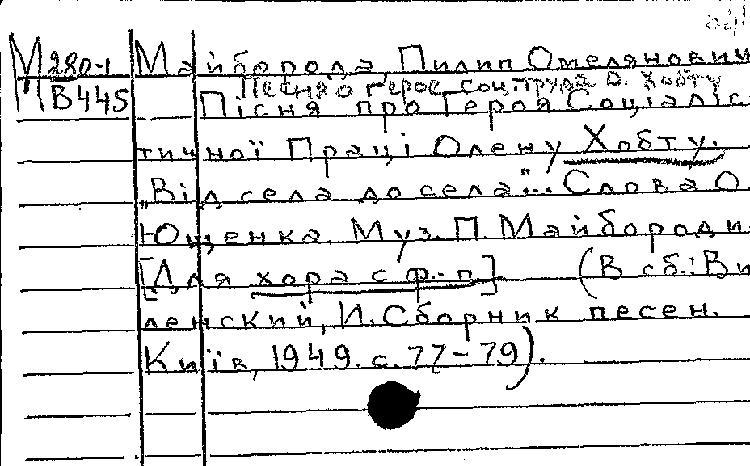 М280-1 Майборода, Пилип Омелянович
Песня о герое соц. труда О. Хобту
В445 Пісня про Героя Соціаліс-
тичної Праці Олену Хобту.
„Від села до села"... Слова О.
Ющенка. Муз. П. Майбороди.
[Для хора с ф.-п] (В сб.: Ви-
ленский, И. Сборник песен.
Київ, 1949. с. 77-79).